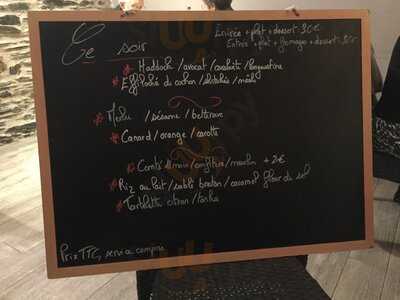 Ce soir
Entrée + plat + dessert 30€
Entrée + plat + fromages + dessert
Haddock / avocat /
Effiloché du cochon / shitakés /
Merlu / sésame / betterave
Canard / orange / carotte
Comté 18 mois / confiture / + 2€
Riz au lait / sablé breton / caramel fleur de sel
Tartelette citron / tonka
Prix TTC, service compris